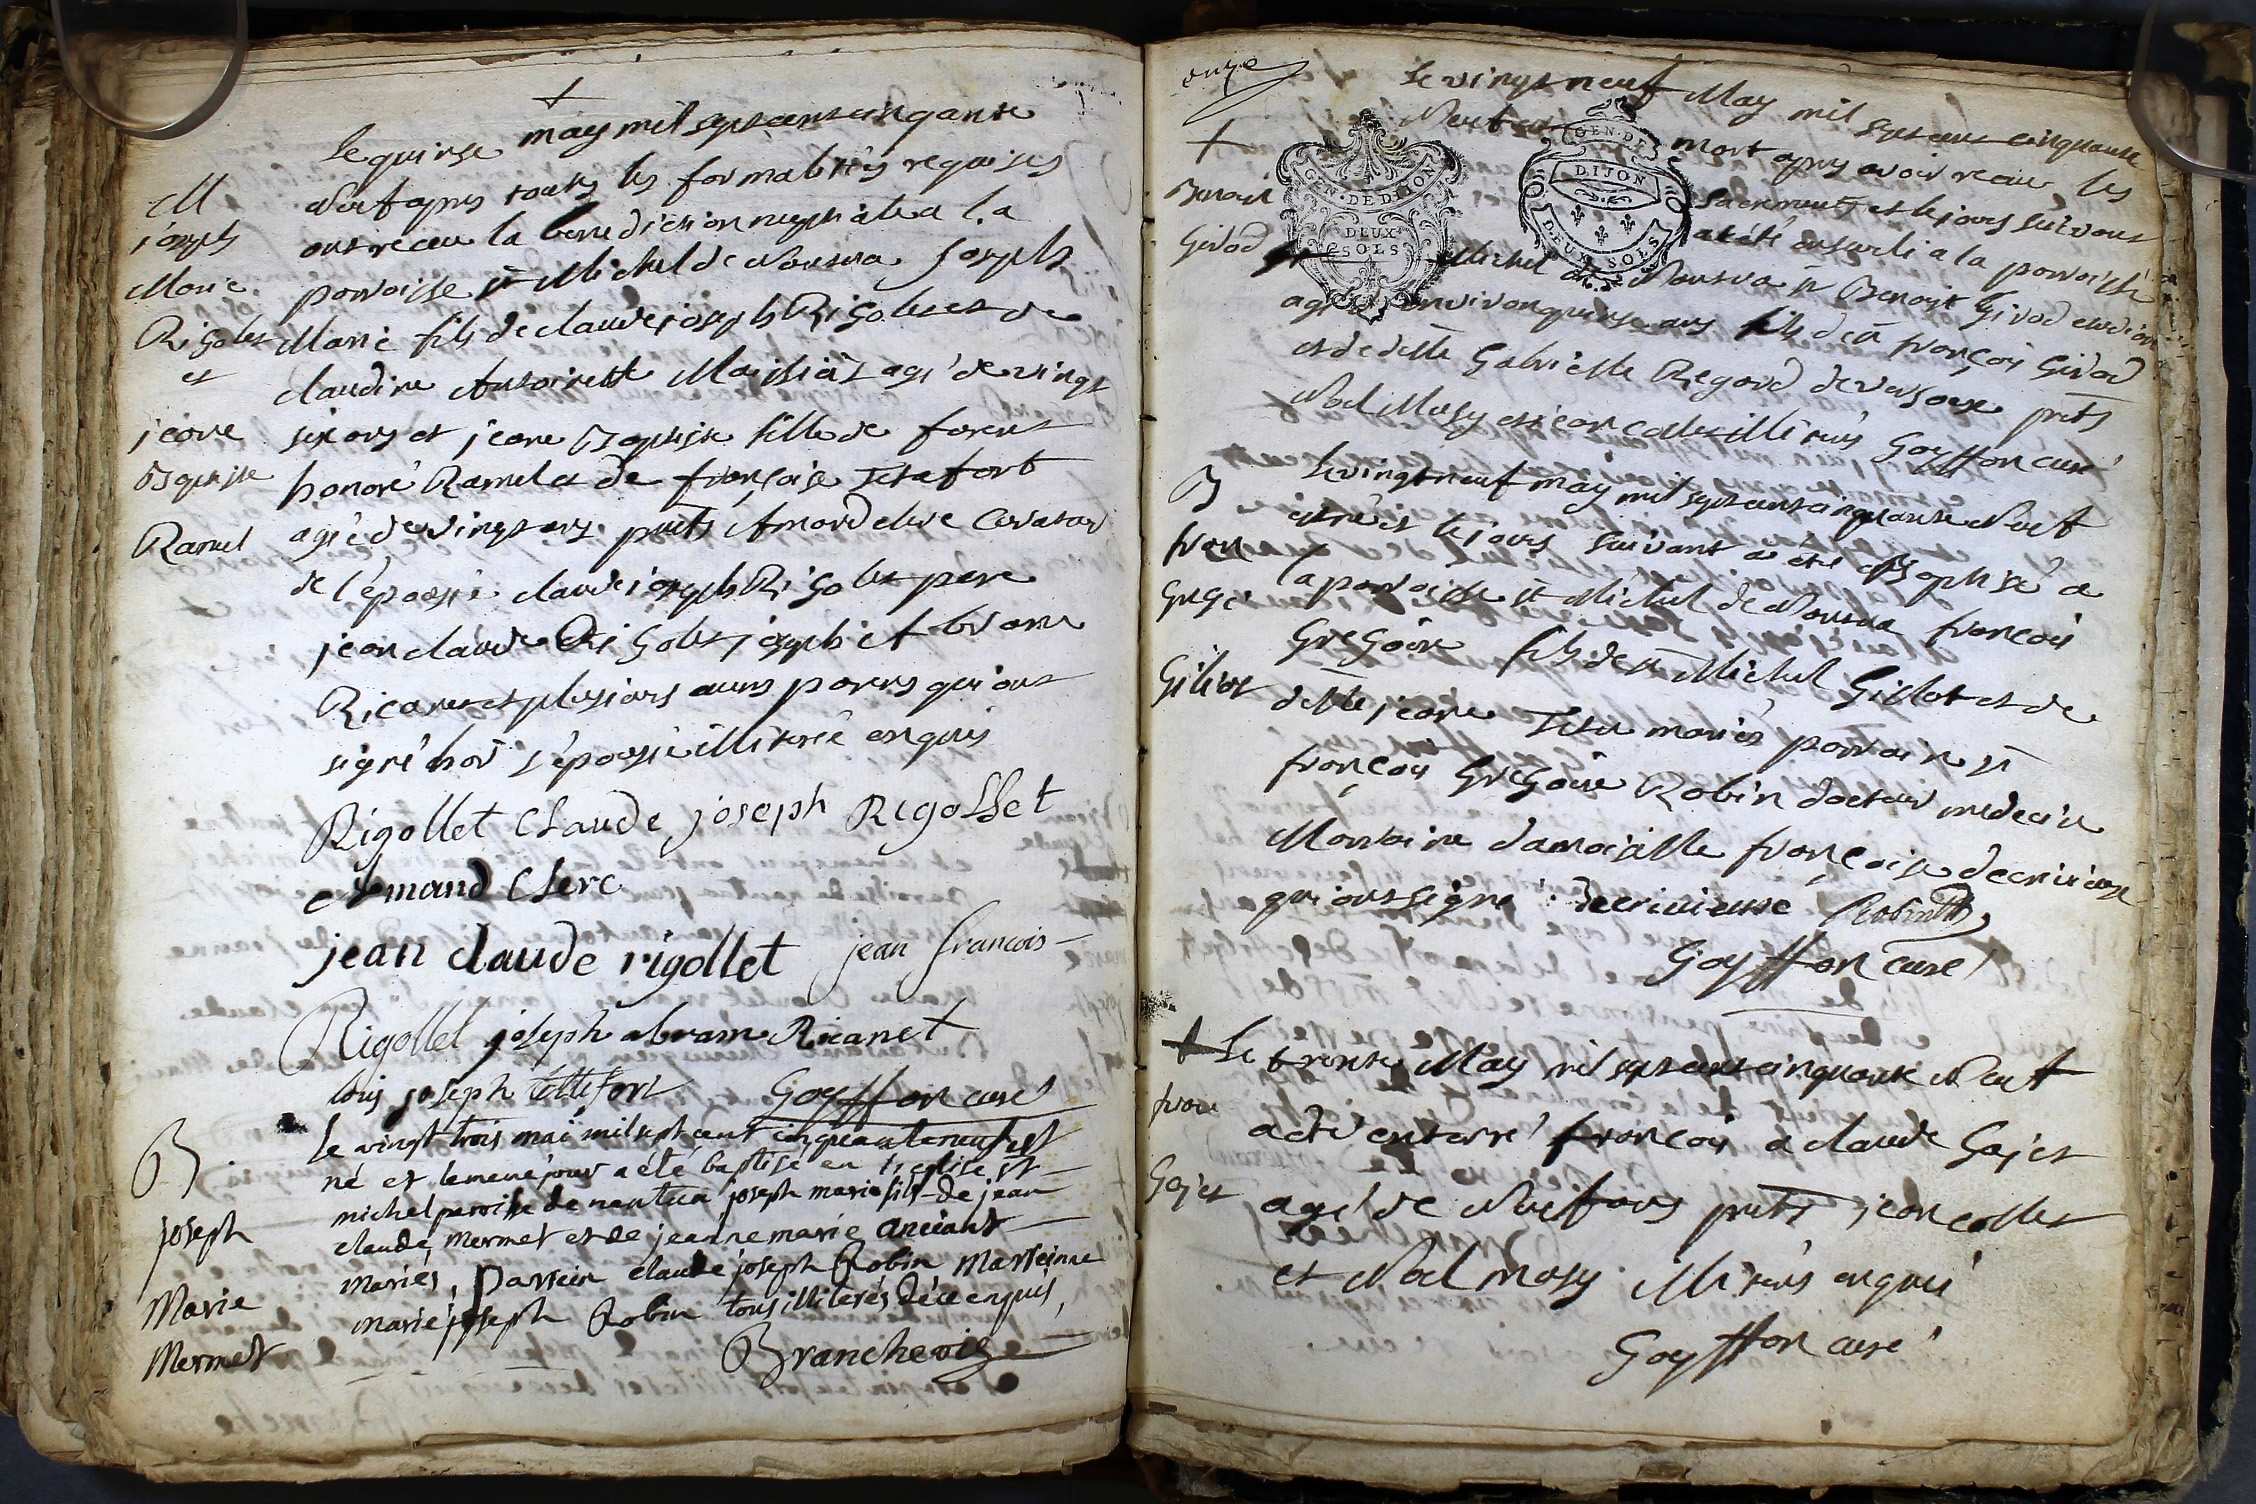 Le quinse may mil sept cent cinquante
Neuf apres toutes les formalités requises
ont receu la benediction nuptiale a la
parroisse st Michel de Nantua Joseph
Marie fils de claude joseph Rigolet et de
claudine Antoinette Maissiat agé de vingt
six ans et jeane Baptiste fille de
honoré Ramel et de françoise Tetafort
agée de vingt ans pnts Amand clerc Curateur
de l'épouse claude joseph Rigolet pere
jean claude Rigolet joseph Abram
Ricanet et plusieurs autres parens qui ont
signé hors l'épouse illiterée enquis
Rigollet Claude joseph Rigollet
Amand Clerc
jean claude rigollet jean francois
Rigollet joseph abram Ricanet
Louis joseph tettefort Goyffon curé
M
joseph
Marie
Rigolet
et
jeane
Baptiste
Ramel
Le vingt trois mai mil sept cent cinquante neuf est
né et le meme jour a été baptisé en l'eglise st
michel paroisse de nantua joseph marie fils de jean
claude Mermet et de jeanne marie anciant
mariés, Parrein claude joseph Robin Marreinne
marie joseph Robin tous illiterés de ce enquis,
Brancheoig
B
joseph
Marie
Mermet
onze
Le vingt neuf May mil sept cent cinquante
Neuf est mort apres avoir receu les
Sacrements et le jour suivant
a été enseveli a la parroisse
st Michel de Nantua sr Benoit Girod etudiant
agé d'environ quinse ans fils de sr françois Girod
et de delle Gabrielle Regard de pnts
Noel Musy et jean collet illiterés Goyffon curé
Benoit
Girod
GEN. DE DIJON
DEUX
SOLS
GEN. DE
DIJON
DEUX SOLS
Le vingt neuf may mil sept cent cinquante Neuf
est né et le jour suivant a été Baptisé a
la parroisse st Michel de Nantua françois
Gregoire fils de sr Michel Gillot et de
delle jeane mariés parrain sr
françois Gregoire Robin docteur medecin
Marraine damoiselle françoise decrivieuse
qui ont signé decrivieuse Robin
Goyffon curé
B
fran
Grege
Gillot
Le trente May mil sept cent cinquante Neuf
a été enterré françois a claude Gajet
agé de Neuf ans pnts jean collet
et Noel Musy illiterés enquis
Goyffon curé
fran
Gajet